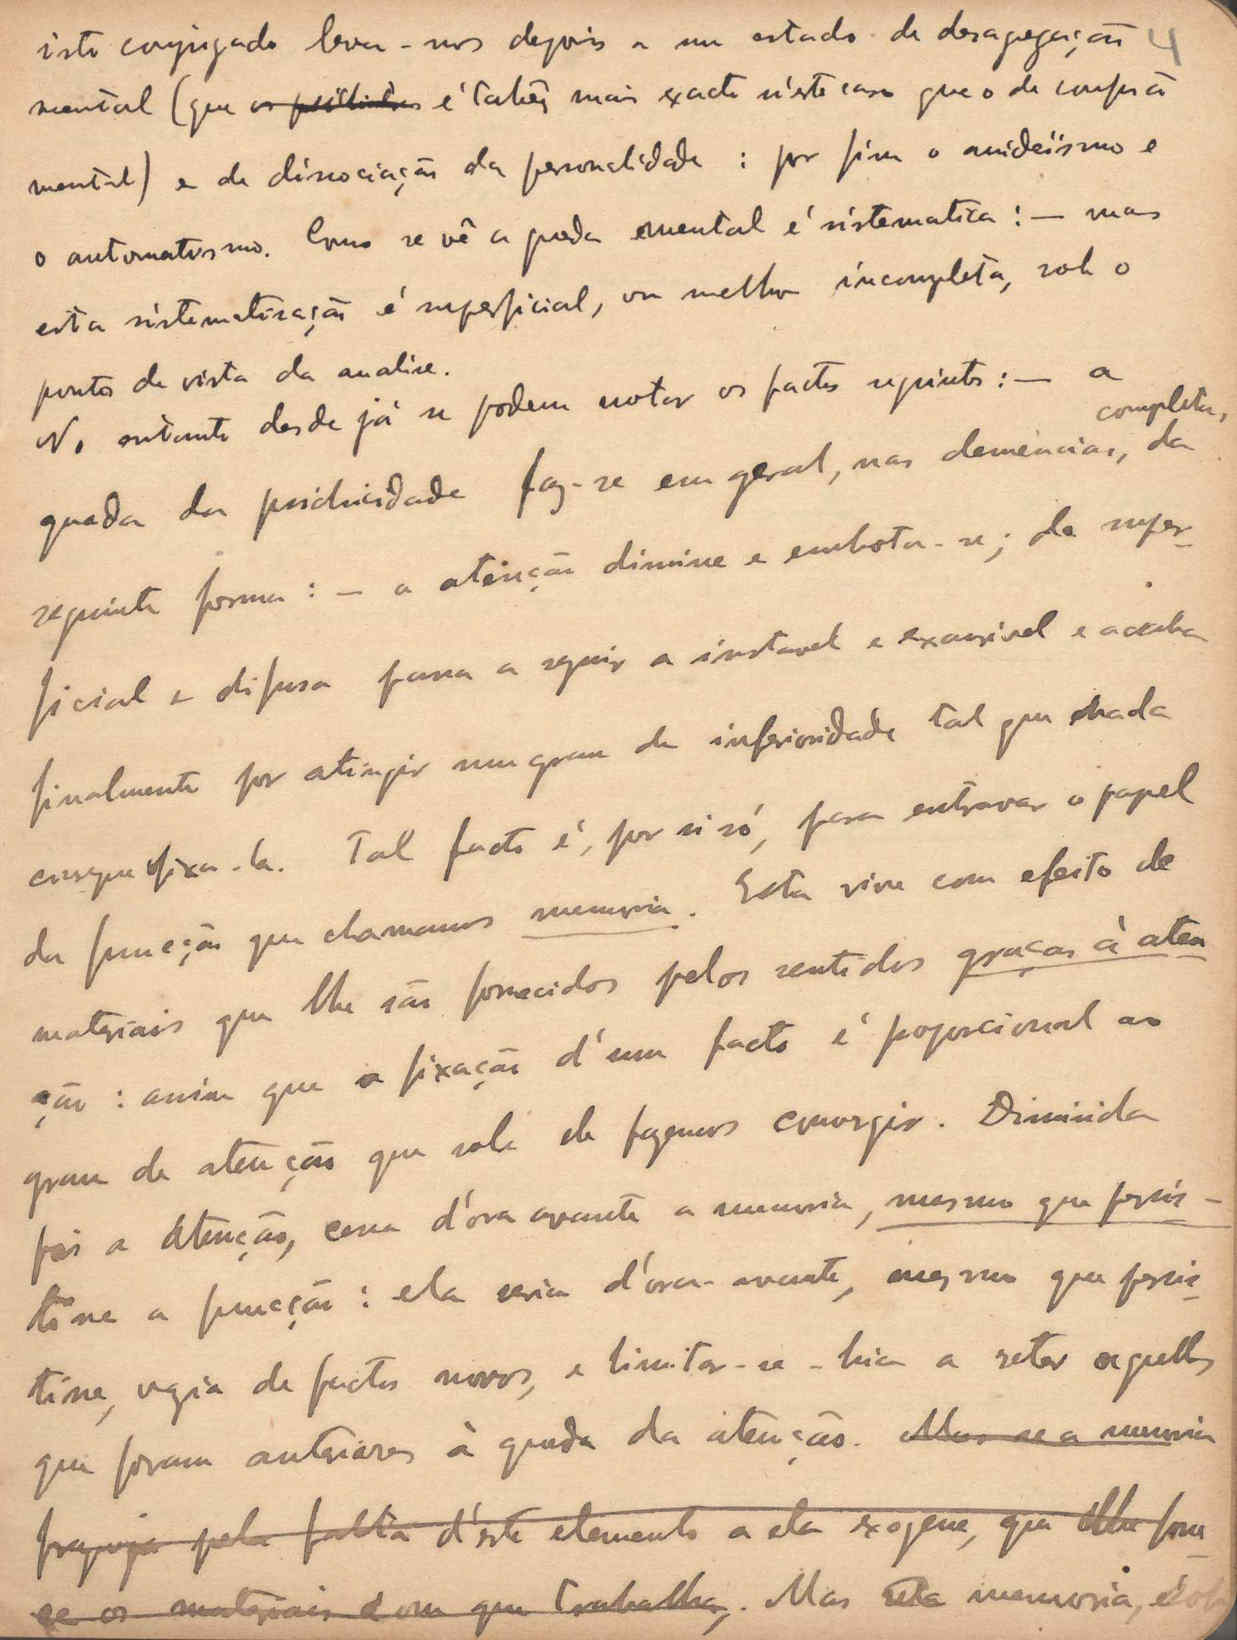 isto conjugado leva-nos depois a um estado de desagregação 4
mental (que os é talvez mais exacto n'este caso que o de confusão
mental) e de dissociação da personalidade : por fim o monideismo e
o automatismo. Como se vê a queda mental é sistematica : — mas
esta sistematização é superficial, ou melhor incompleta, sob o
ponto de vista da analise.
No entanto desde já se podem notar os factos seguintes : — a
completa,
queda da psichicidade faz-se em geral, nas demencias, da
seguinte forma : — a atenção diminue e embota-se; de super-
ficial e difusa passa a seguir a instavel e exaurivel e acaba
finalmente por atingir um grau de inferioridade tal que nada
consegue fixa-la. Tal facto é, por si só, para entravar o papel
da funcção que chamamos memoria. Esta vive com efeito de
materiais que lhe são fornecidos pelos sentidos graças à aten
ção : assim que a fixação d'um facto é poporcional ao
grau de atenção que sobe ele fazemos convergir. Diminida
pois a atenção, cessa d'ora avante a memoria, mesmo que persis-
tisse a funcção : ela seria d'ora-avante, mesmo que persis-
tisse, vazia de factos novos, e limitar-se-hia a reter aquelles
que foram anteriores à queda da atenção. Mas se a memoria
fraqueja pela falta d'este elemento a ela exogene, que lhe forne
ce os materiais com que trabalha,. Mas esta memoria, é sob